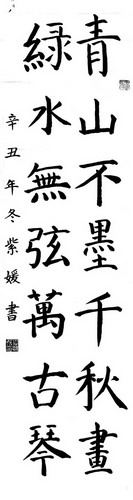 青山不墨千秋畫
綠水無弦萬古琴
辛丑年冬紫媛書